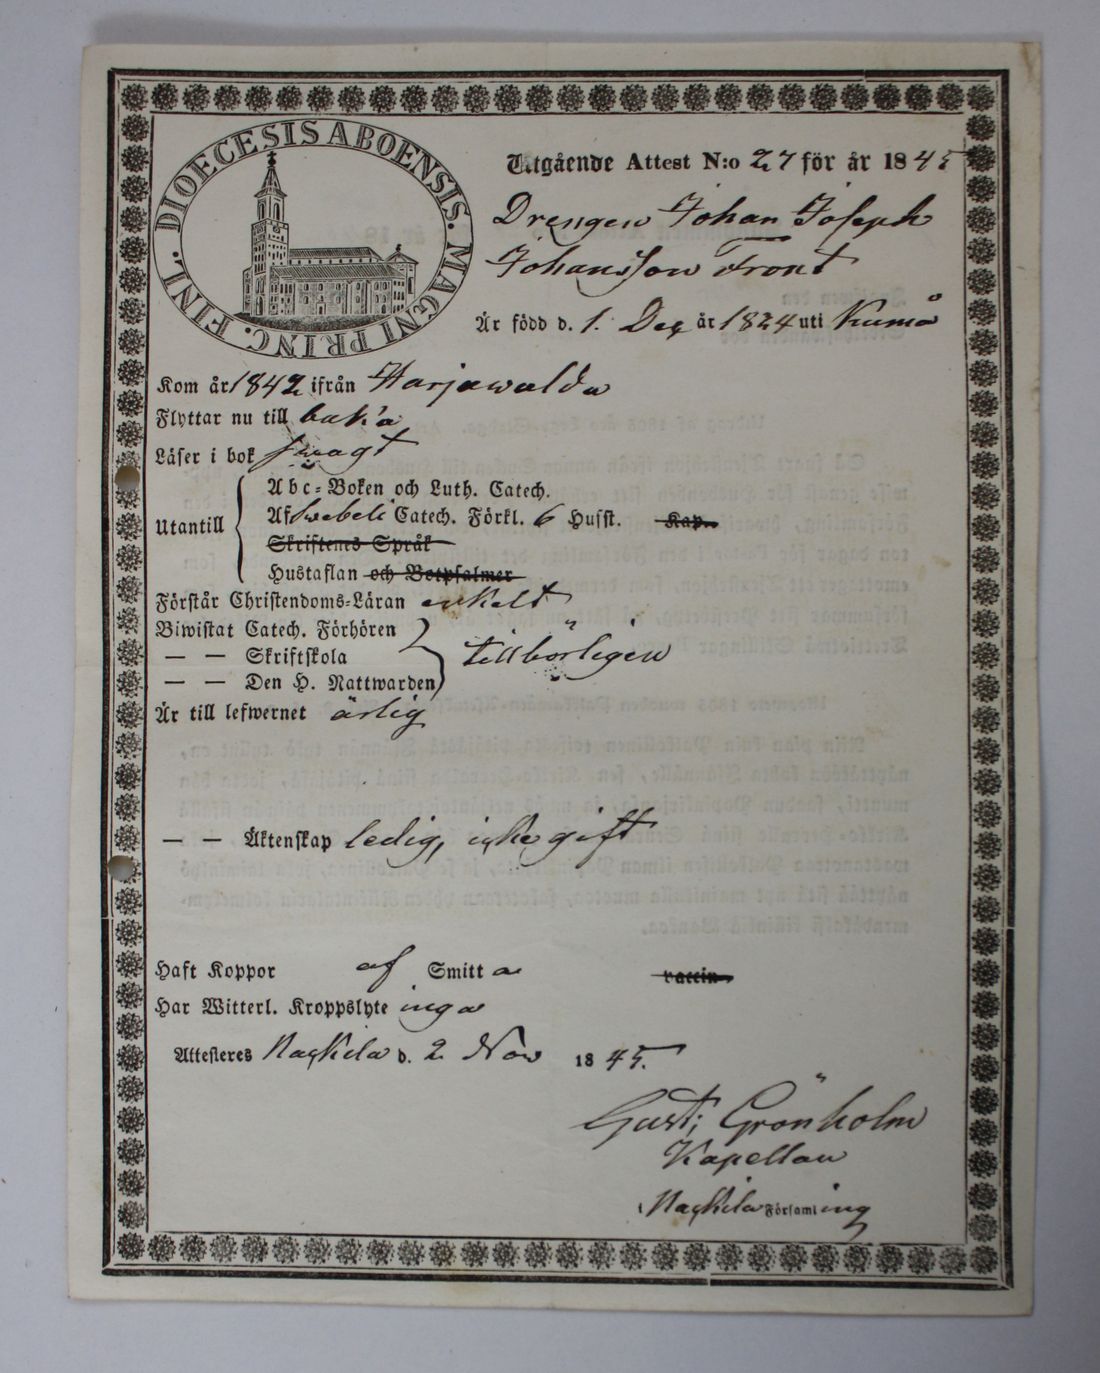 DIOECESIS ABOENSIS. MAGNI PRINC. FINL.
Utgående Attest N:o 27 för år 1845
Drengen Johan Joseph
Johansson Front
Är född d. 1. Dec år 1824 uti Kumo
Kom år 1842 ifrån Harjawalda
Flyttar nu till baka
Läser i bok swagt
Utantill
Abc-Boken och Luth. Catech.
Af Swebeli Catech. Förkl. 6 Husst. Kap.
Skriftenes Språk
Hustaflan och Botpsalmer
Förstår Christendoms-Läran enkelt
Biwistat Catech. Förhören
— — Skriftskola tillbörligen
— — Den H. Nattwarden
Är till lefwernet ärlig
— — Äktenskap ledig, icke gift
Haft Koppor af Smitta vaccin
Har Witterl. Kroppslyte inga
Attesteres Nackila d. 2 Nov 1845.
Gust; Grönholm
Kapellan
i Nackila Församling